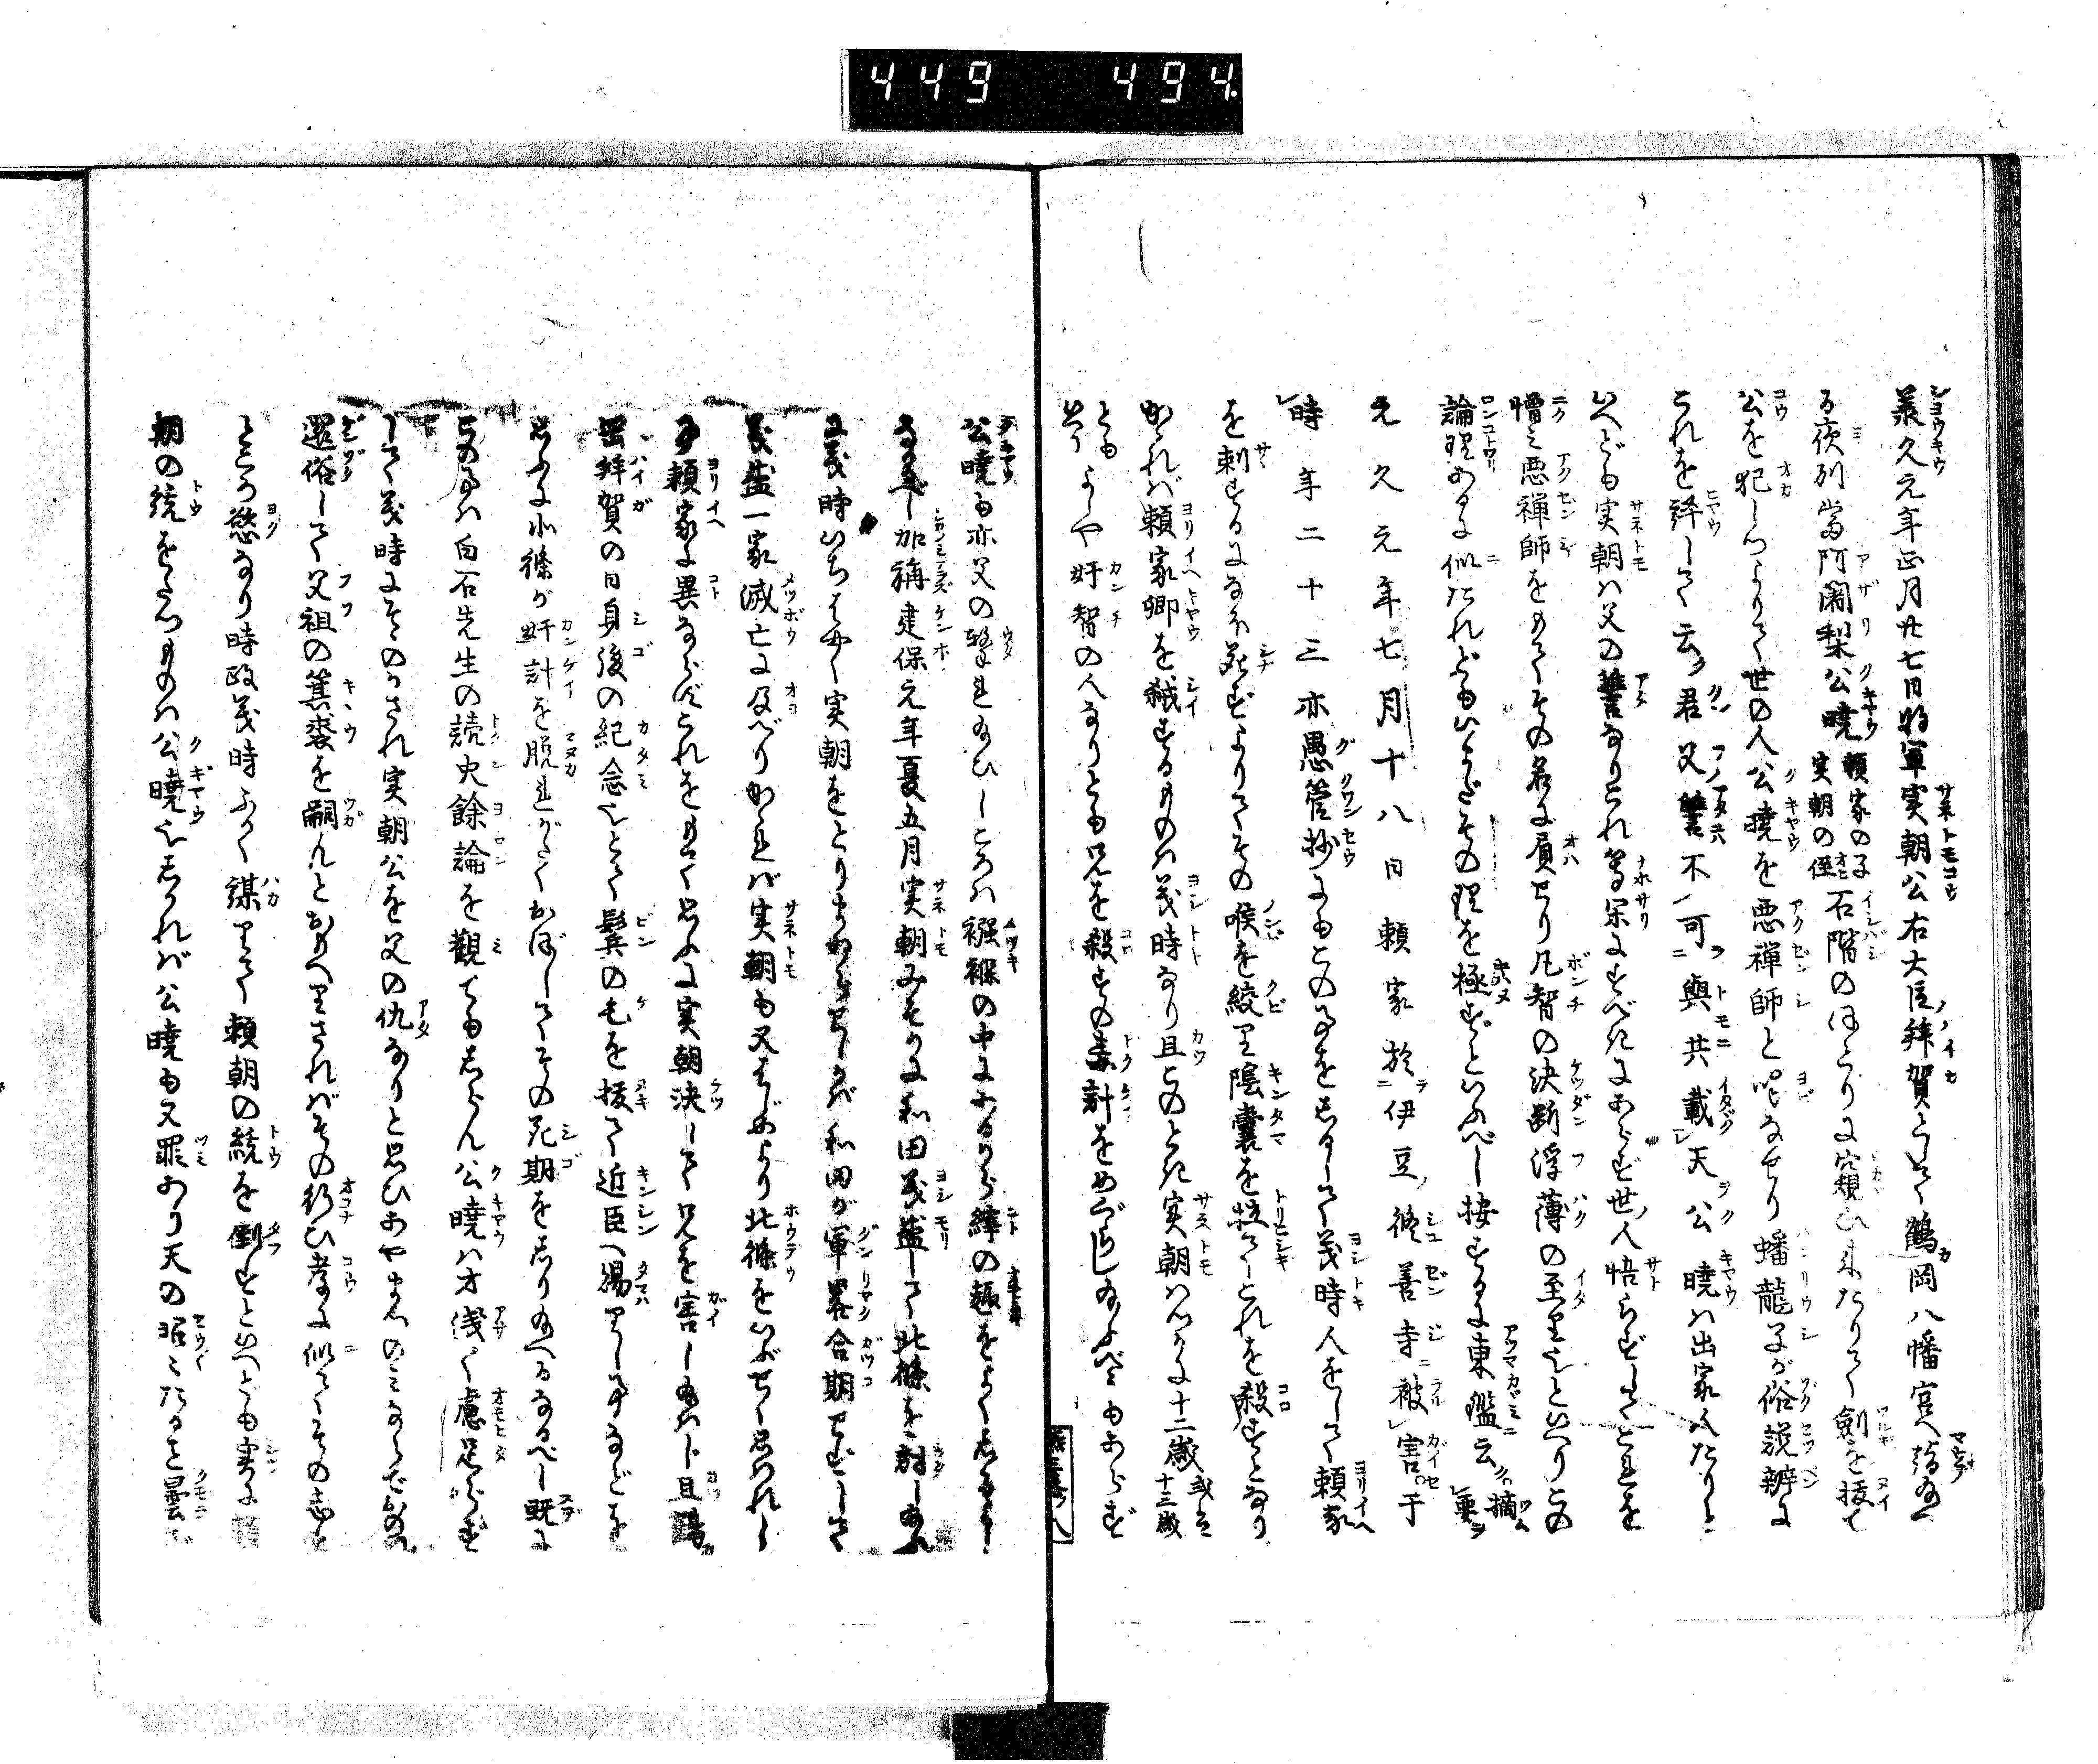 449 494.
承久元年正月廿七日将軍実朝公右大臣拝賀として鶴岡八幡宮へ詣給へ
る夜別当阿闍梨公暁頼家の子実朝の侄石階のほとりに窺ひ来たりて剣を抜て
公を犯しつよりて世の人公暁を悪禅師と呼なせり蟠龍子が俗説辨に
これを辨して云ク君父ノ讐不可與共載天公暁は出家人たりと
いへども実朝は父の讐なりこれ等閑にすべきにあらず世ノ人悟らずしてこれを
憎ミ悪禅師をもてその名に負せり凡智の決断浮薄の至りといへりこの
論理あるに似たれどもいまだその理を極ずといふべし按ずるに東鑑云ク摘要
元久元年七月十八日頼家於伊豆ノ修善寺被害于
時年二十三亦愚管抄にもこの事をしるして義時人をして頼家
を刺するになほ死ずよりてその喉を絞り陰嚢を拉てこれを殺すとなり
かゝれば頼家卿を弑するものは義時なり且このとき実朝はつかに十二歳或云十三歳
なりよしや奸智の人なりとも兄を殺すの毒計をめぐらし給ふべくもあらず
公暁も亦父の撃れ給ひしころは襁褓の中にあるから縡の趣をよくしるまし
加旃建保元年夏五月実朝みそかに和田義盛して北條を討し給ふ
に義時いちはやく実朝をとりまゐらせしかば和田が軍畧合期せずして
義盛一家滅亡に及べりかゝれば実朝も又はじめより北條をいぶせく思はれし
事頼家に異ならずこれをもて思ふに実朝決して兄を害し給はじ且鶴
岡拝賀の日身後の紀念をとて鬢の毛を抜て近臣へ賜りし事などを
思ふに北條が奸計を脱れがたくおぼしてその死期をしり給へるなるべし既に
この事は白石先生の読史餘論を観てもしらん公暁は才浅く慮足らず
して義時にそゝのかされ実朝公を父の仇なりと思ひあやまるのミならでおのれ
還俗して父祖の箕裘を嗣んとおもへりさればその行ひ孝に似てその志は
ところ慾なり時政義時ふかく謀りて頼朝の統を倒すといへども実に頼
朝の統をたつものは公暁也しかれば公暁も又罪あり天の昭々たるこゝ曇